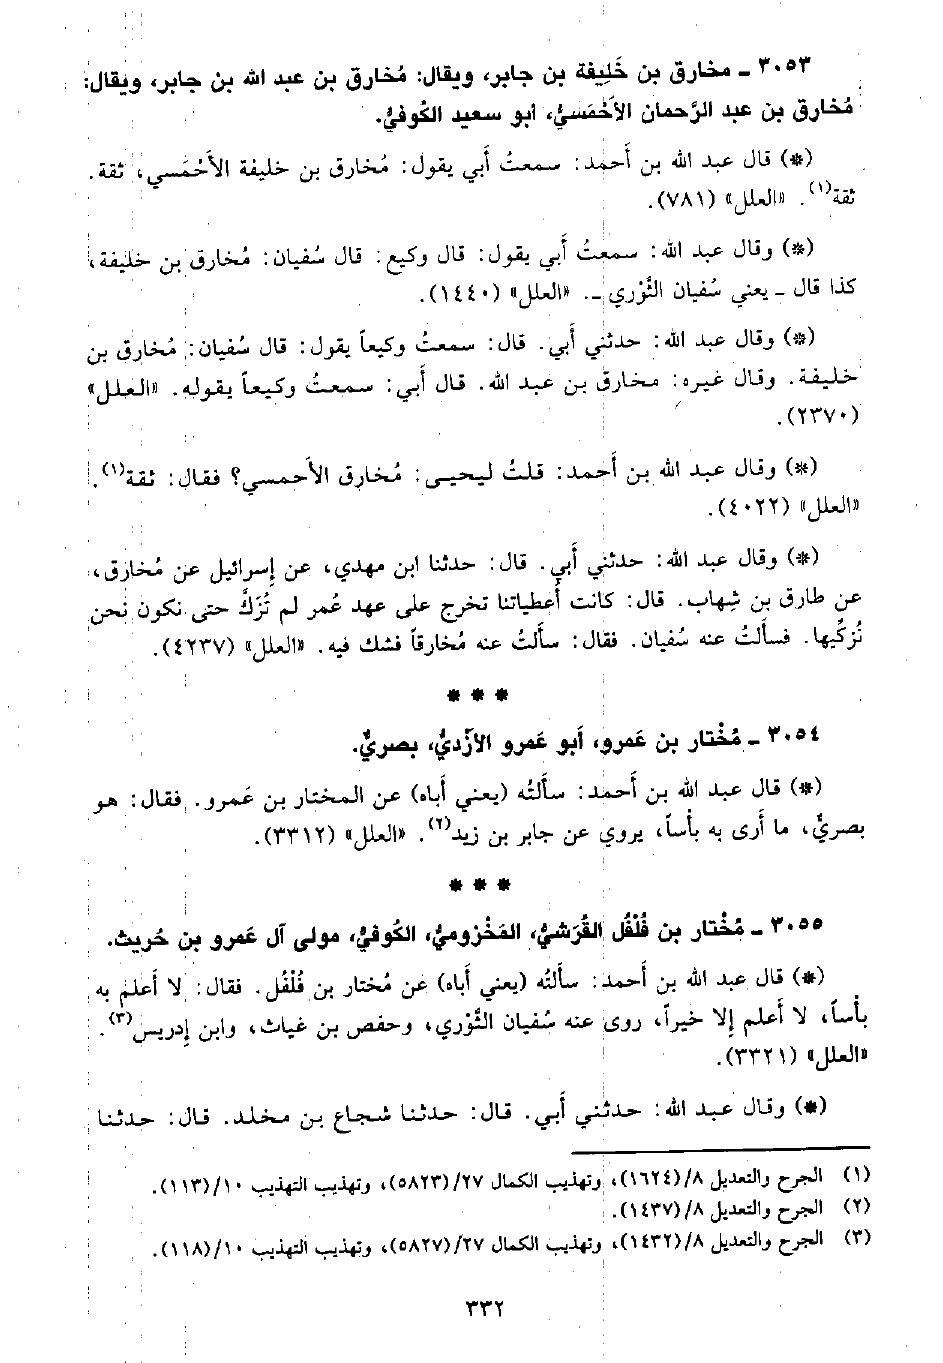 ٣٠٥٣ ـ مخارق بن خَلِيفة بن جابر، ويقال: مُخارق بن عبد الله بن جابر، ويقال:
مُخارق بن عبد الرَّحمان الأَحْمَسيُّ، أبو سعيد الكُوفيُّ.
(*) قال عبد الله بن أَحمد: سمعتُ أَبي يقول: مُخارق بن خليفة الأَحْمَسي، ثقة.
ثقة(١). «العلل» (٧٨١).
(*) وقال عبد الله: سمعتُ أَبي يقول: قال وكيع: قال سُفيان: مُخارق بن خليفة،
كذا قال ـ يعني سُفيان الثَّوْري ـ. «العلل» (١٤٤٠).
(*) وقال عبد الله: حدثني أَبي. قال: سمعتُ وكيعاً يقول: قال سُفيان: مُخارق بن
خليفة. وقال غيره: مخارق بن عبد الله. قال أَبي: سمعتُ وكيعاً يقوله. «العلل»
(٢٣٧٠).
(*) وقال عبد الله بن أَحمد: قلتُ ليحيى: مُخارق الأَحمسي؟ فقال: ثقة(١).
«العلل» (٤٠٢٢).
(*) وقال عبد الله: حدثني أَبي. قال: حدثنا ابن مهدي، عن إِسرائيل عن مُخارق،
عن طارق بن شِهاب. قال: كانت أُعطياتنا تخرج على عهد عُمر لم تُزَكَّ حتى نكون نحن
نُزكِّيها. فسألتُ عنه سُفيان. فقال: سألتُ عنه مُخارقاً فشك فيه. «العلل» (٤٢٣٧).
* * *
٣٠٥٤ ـ مُختار بن عَمرو، أَبو عَمرو الأَزْديُّ، بصريٌّ.
(*) قال عبد الله بن أَحمد: سألتُه (يعني أَباه) عن المختار بن عَمرو. فقال: هو
بصريٌّ، ما أَرى به بأساً، يروي عن جابر بن زيد(٢). «العلل» (٣٣١٢).
* * *
٣٠٥٥ ـ مُخْتار بن فُلْفُل القُرَشيُّ، المَخْزوميُّ، الكُوفيُّ، مولى آل عَمرو بن حُريث.
(*) قال عبد الله بن أَحمد: سألتُه (يعني أَباه) عن مُختار بن فُلْفُل. فقال: لا أَعلم به
بأساً، لا أَعلم إلا خيراً، روى عنه سُفيان الثَّوْري، وحفص بن غياث، وابن إِدريس(٣).
«العلل» (٣٣٢١).
(*) وقال عبد الله: حدثني أَبي. قال: حدثنا شجاع بن مخلد. قال: حدثنا
(١) الجرح والتعديل ٨/(١٦٢٤)، وتهذيب الكمال ٢٧/(٥٨٢٣)، وتهذيب التهذيب ١٠/(١١٣).
(٢) الجرح والتعديل ٨/(١٤٣٧).
(٣) الجرح والتعديل ٨/(١٤٣٢)، وتهذيب الكمال ٢٧/(٥٨٢٧)، وتهذيب التهذيب ١٠/(١١٨).
٣٣٢